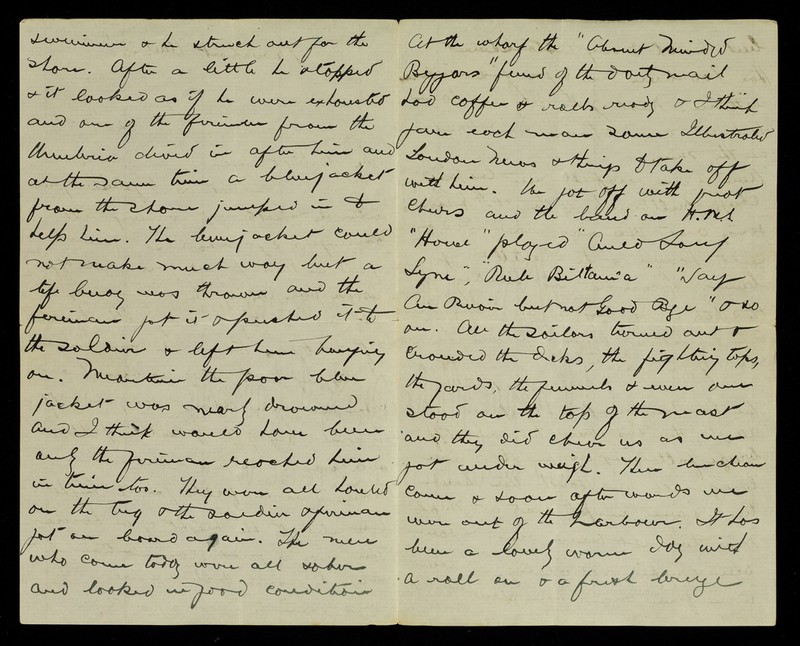 swimmer & he struck out for the
shore. After a little he stopped
& it looked as if he were exhausted
and one of the fireman from the
Umbria dived in after him and
at the same time a bluejacket
from the shore jumped in to
help him. The bluejacket could
not make much way but a
life buoy was thrown and the
fireman got it & pushed it to
the soldier & left him hanging
on. Meantime the poor blue
jacket was nearly drowned
and I think would have been
only the fireman reached him
in time too. They were all hauled
on the tug & the soldier & fireman
got on board again. The men
who came today were all sober
and looked in good condition
At the wharf the "Absent Minded
Beggars" fund of the Daily Mail
had coffee & rolls ready & I think
gave each man some Illustrated
London News & things to take off
with him. We got off with great
cheers and the band on H.M.S
"Howe" played "Auld Lang
Syne", "Rule Brittania" "Say
Au Revoir but not Good Bye" & so
on. All the sailors turned out &
crowded the decks, the fighting tops,
the yards, the funnels & even one
stood on the top of the mast
and they did cheer us as we
got under weigh. Then luncheon
came & soon afterwards we
were out of the harbour. It has
been a lovely warm day with
a roll on & a fresh breeze